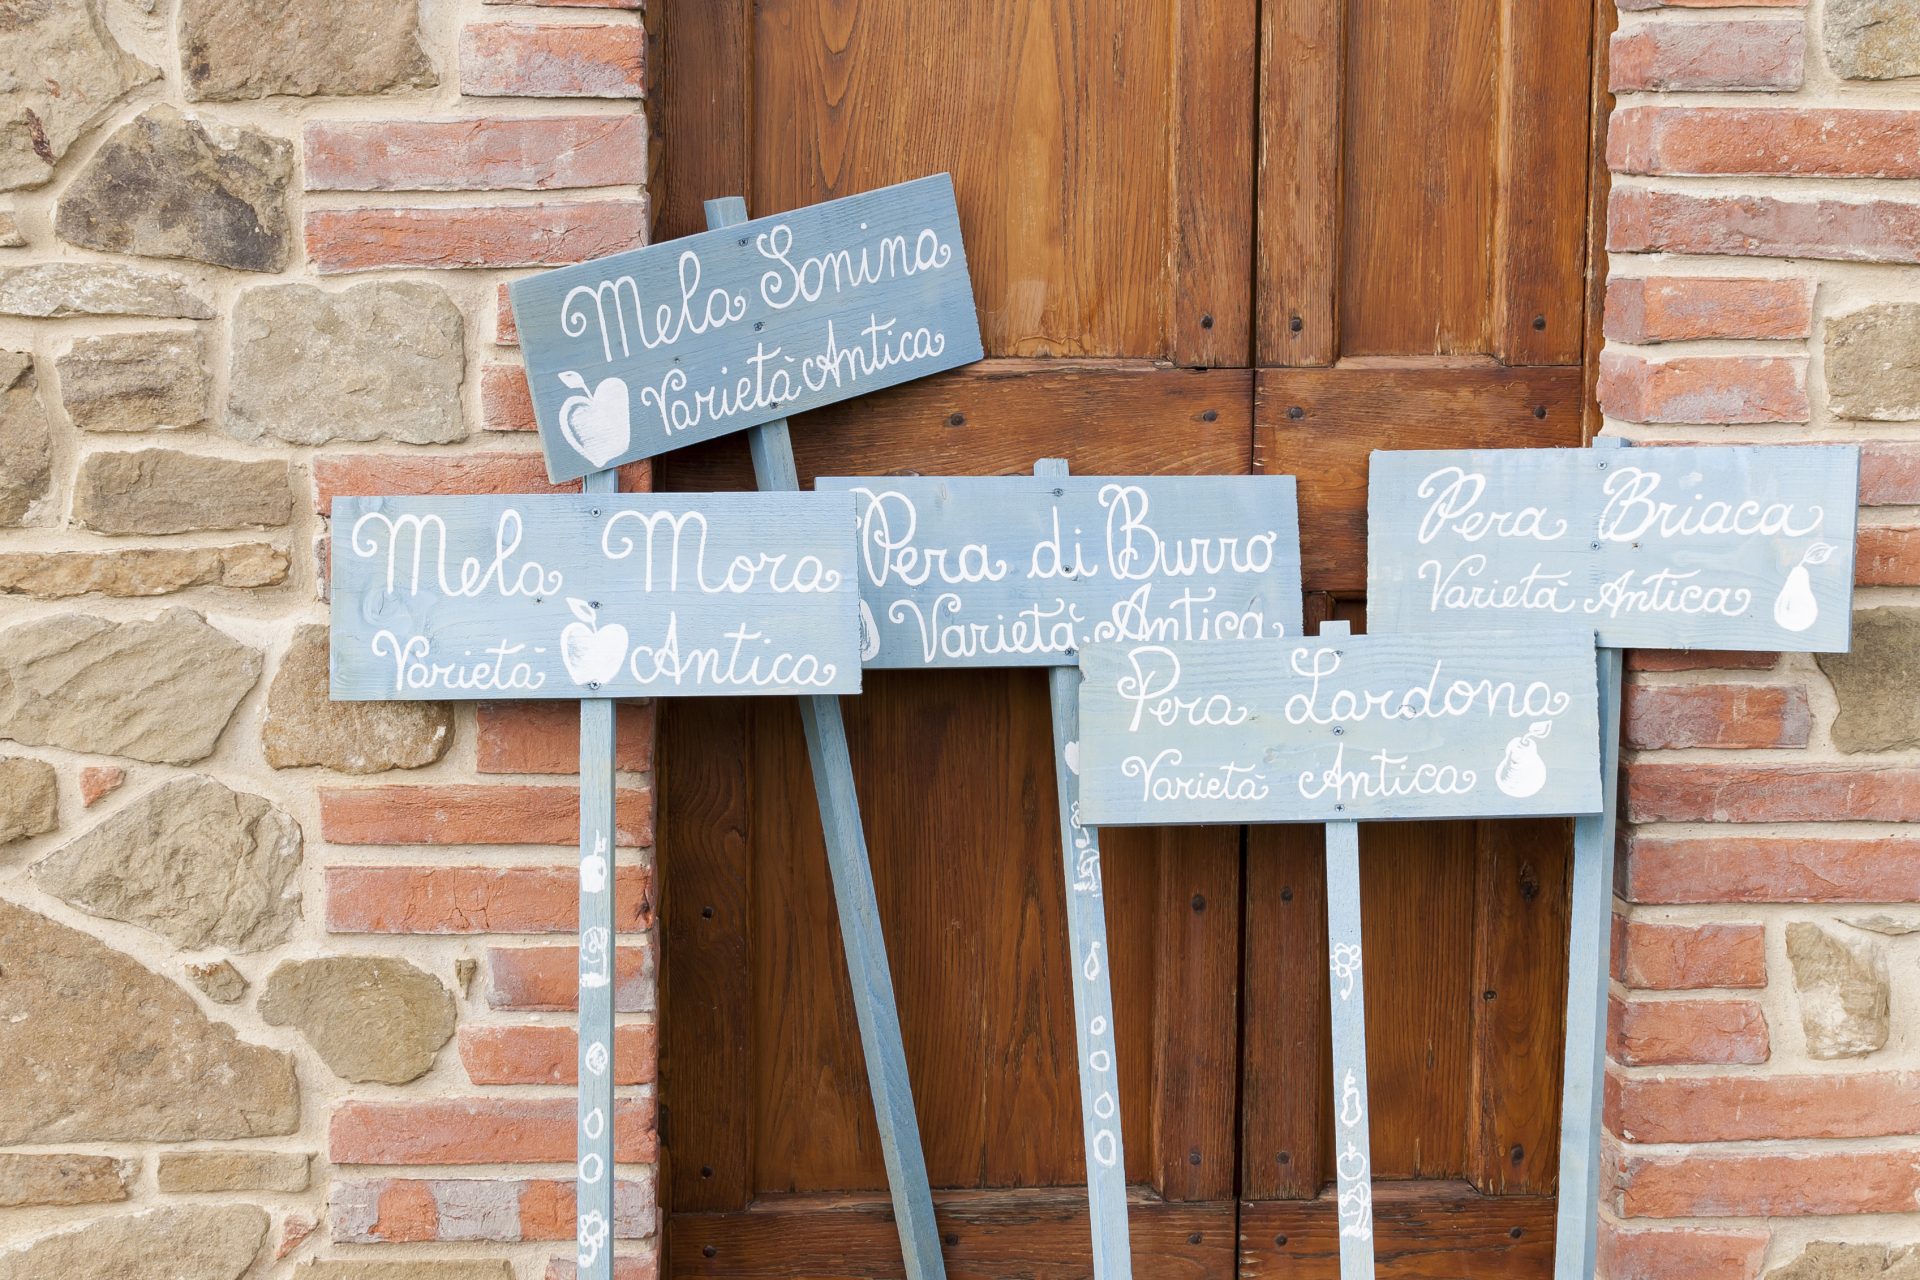 Mela Sonina
Varietà Antica
Mela Mora
Varietà Antica
Pera di Burro
Varietà Antica
Pera Briaca
Varietà Antica
Pera Lardona
Varietà Antica